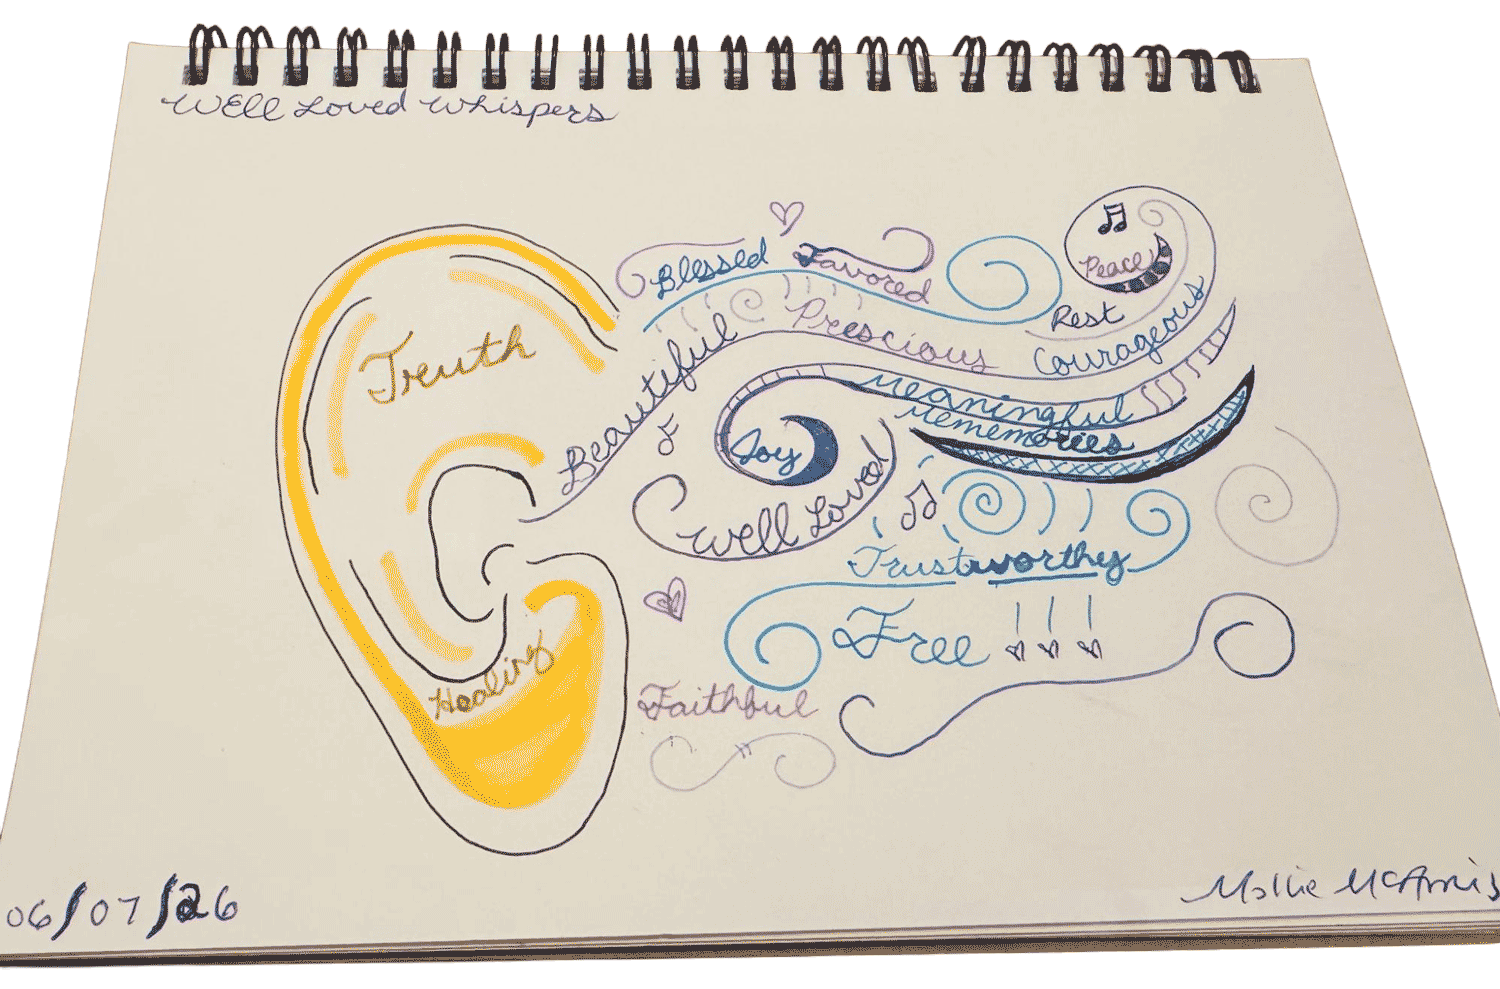 Well Loved Whispers
Blessed
Favored
Peace
Rest
Truth
Beautiful
Prescious
Courageous
Meaningful
Mememories
Joy
Well Loved
Trustworthy
Free
Healing
Faithful
06/07/26
Mollie McAnnis